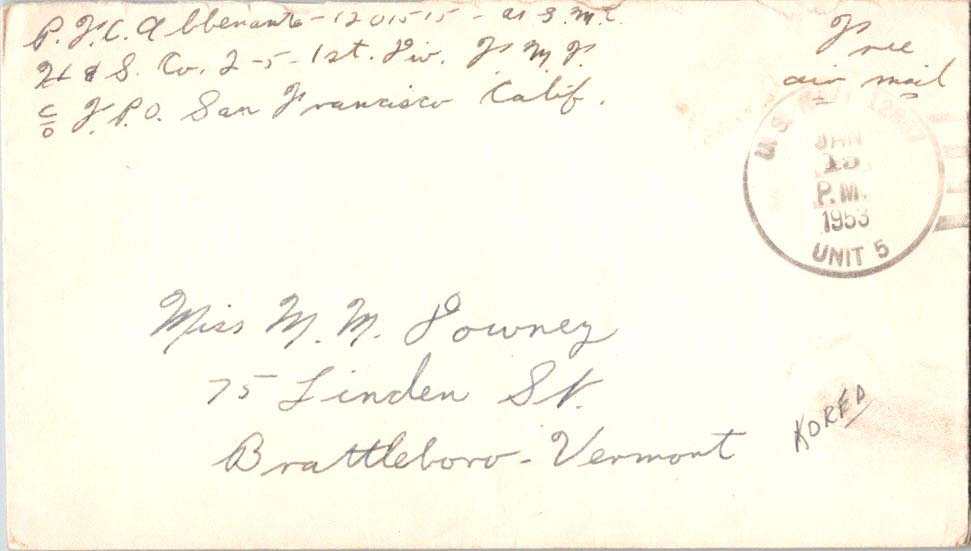 P.F.C. Abbenante - 1201515 - U.S.M.C.
H & S. Co. 2-5-1st. Div. F M F
c/o F.P.O. San Francisco Calif.
Free
air mail
U.S.
JAN
13
P.M.
1953
UNIT 5
Miss M. M. Downey
75 Linden St.
Brattleboro - Vermont
KOREA